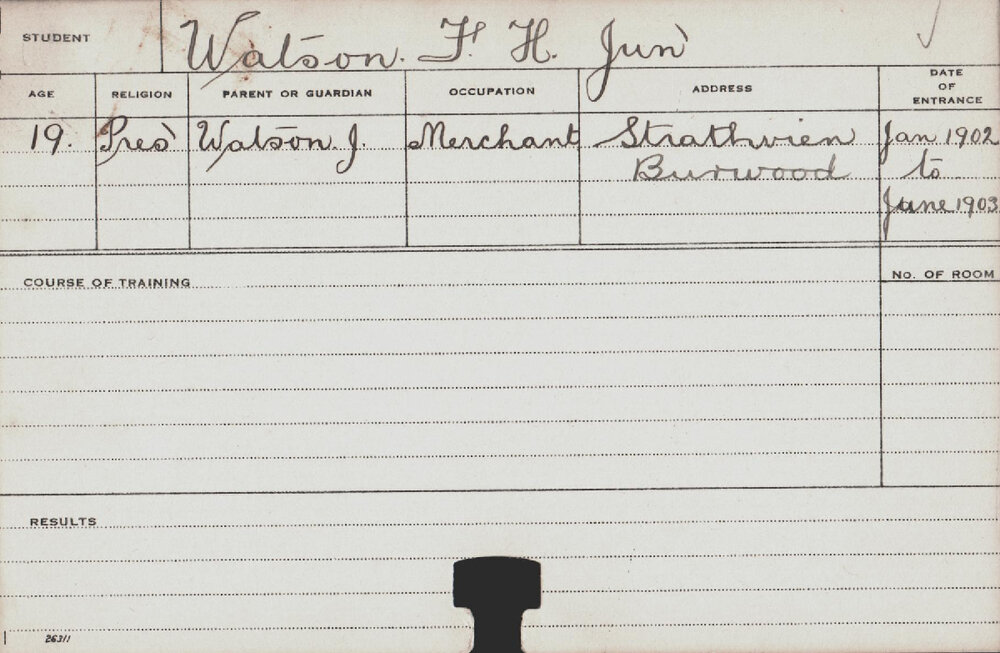 STUDENT Watson. F. H. Jun'
AGE RELIGION PARENT OR GUARDIAN OCCUPATION ADDRESS DATE OF ENTRANCE
19. Pres' Watson. J. Merchant Strathvien Jan 1902
Burwood to
June 1903
COURSE OF TRAINING No. OF ROOM
RESULTS
26311